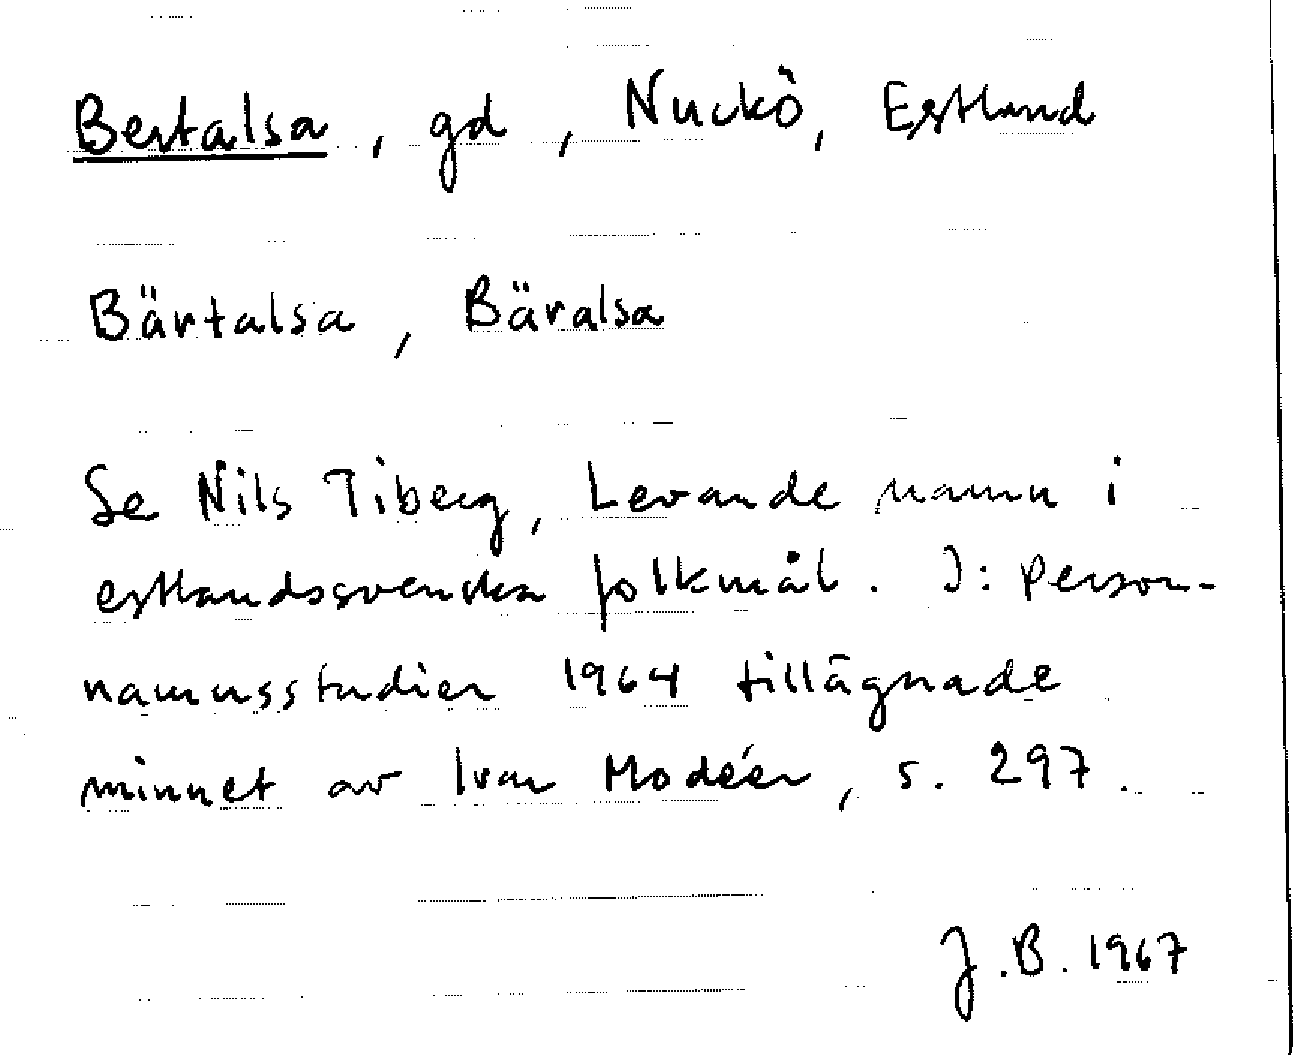 Bertalsa, gd, Nuckö, Estland
Bärtalsa, Bäralsa
Se Nils Tiberg, Levande namn i
estlandssvenska folkmål. I: Person-
namnsstudier 1964 tillägnade
minnet av Ivar Modéer, s. 297.
J.B. 1967